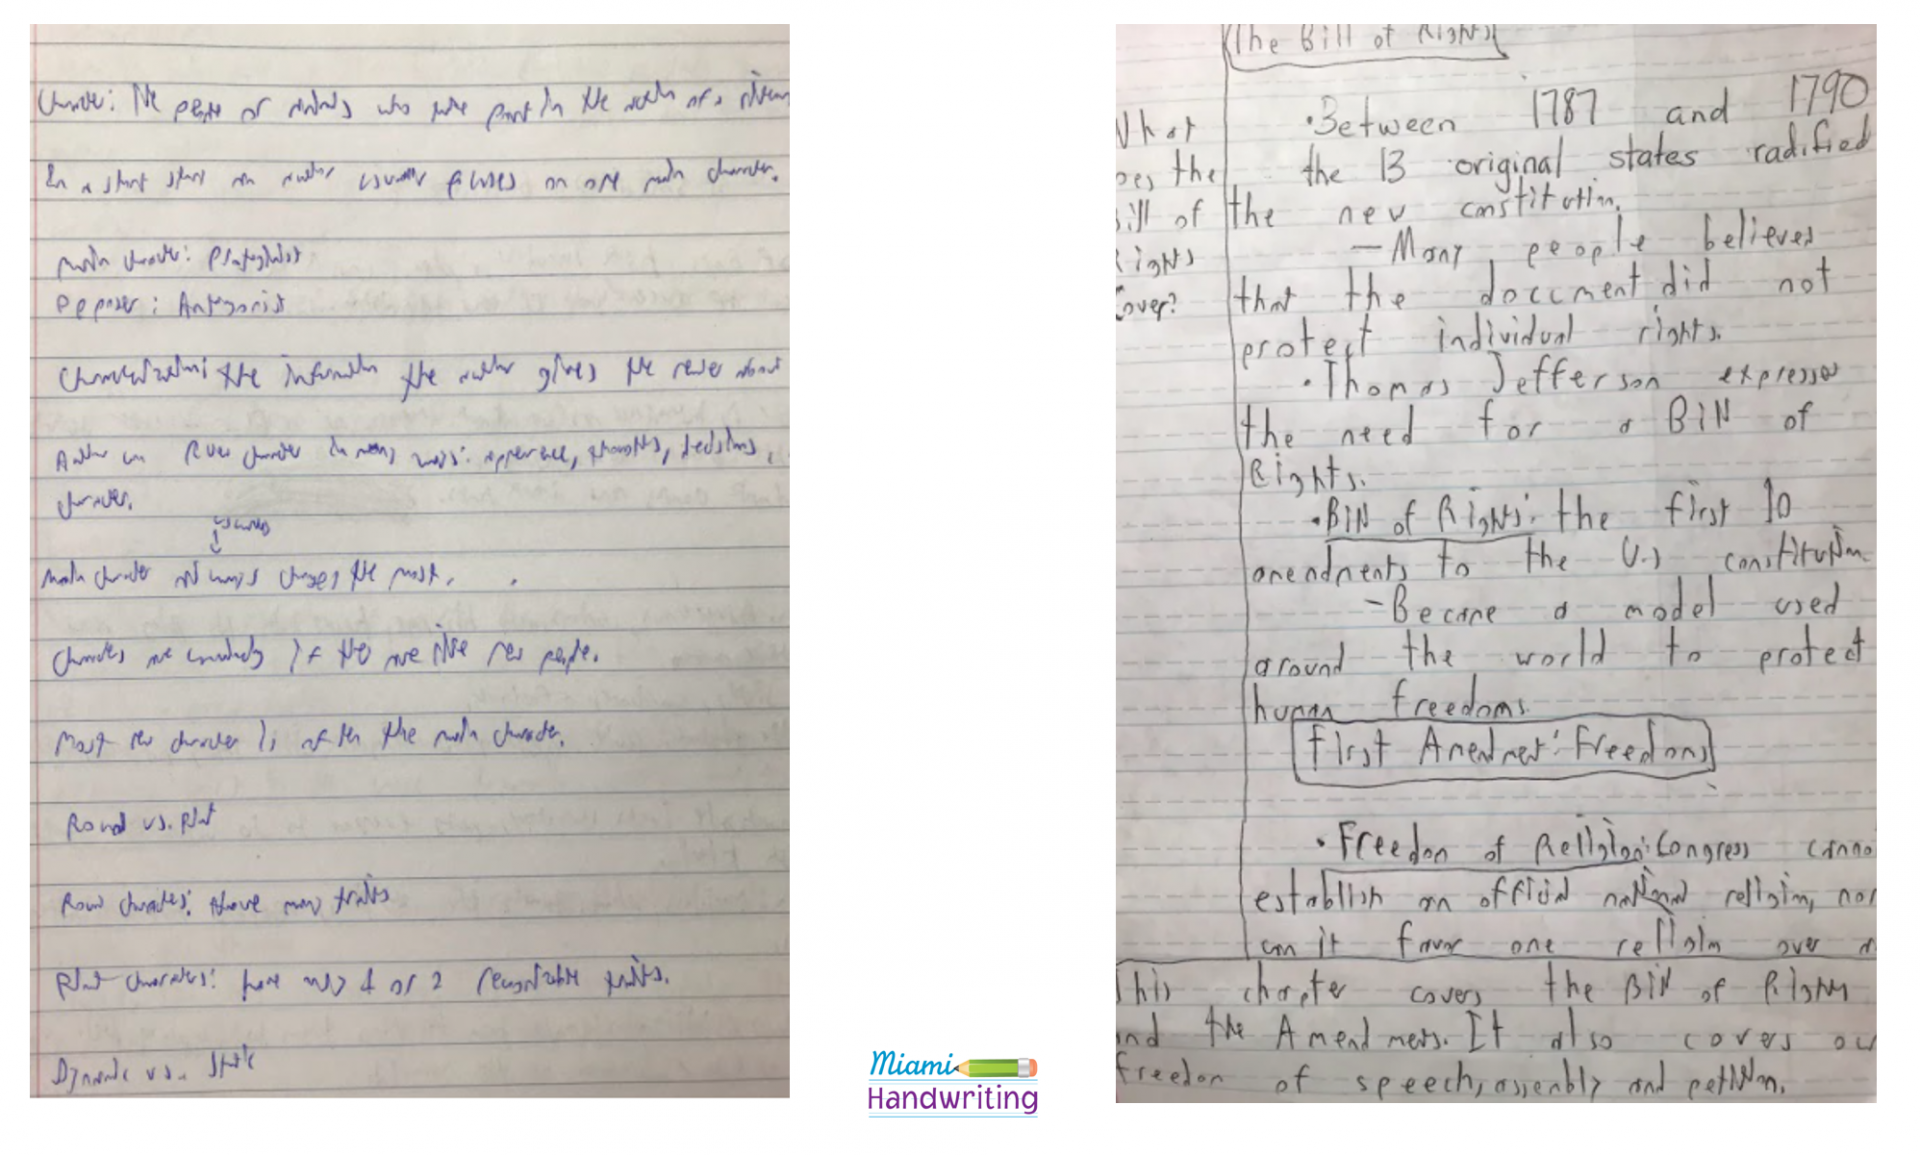 Character: The people or animals who take part in the action of a
In a short story an author usually focuses on one main character.
main character: Protagonist
Opposer: Antagonist
Characterization: the information the author gives the reader about
Author can character in many ways: appearence, thoughts, decisions,
character.
usually
Main character always changes the most.
Characters are if the are like real people.
Most character is after the main character.
Round vs. flat
Round characters: have many traits
Flat characters: have only 1 or 2 traits.
Dynamic vs. Static
The Bill of Rights
What
oes the
ill of
Rights
Cover?
•Between 1787 and 1790
the 13 original states radified
the new constitution.
- Many people believed
that the doccment did not
protect individual rights.
•Thomas Jefferson expresses
the need for a Bill of
Rights.
•Bill of Rights: the first 10
amendments to the U.S constitution
- Became a model used
around the world to protect
human freedoms.
First Amendment: Freedoms
•Freedom of Religion: Congress canno
establish an official national religion, nor
can it favor one religion over a
This chapter covers the Bill of Rights
and the Amendments. It also covers ou
freedom of speech, assembly and petition.
Miami
Handwriting